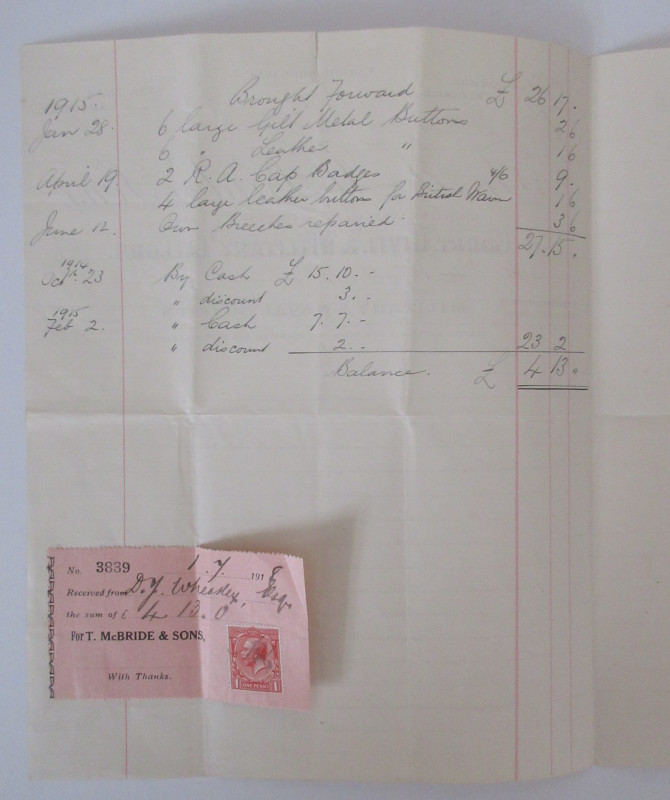 Brought Forward £ 26 17 .
1915.
Jan 28. 6 large Gilt Metal Buttons 2 6
6 " Leather " 1 6
April 19. 2 R. A. Cap Badges 4/6 9 .
4 large leather buttons for British Warm 1 6
June 12. Own Breeches repaired. 3 6
27. 15 .
1914
Oct. 23 By Cash £ 15. 10. -
" discount 3. -
1915
Feb 2. " Cash 7. 7. -
" discount 2. - 23 2
Balance. £ 4 13 .
No. 3839 1. 7. 1918
Received from D. J. Wheatley, Esq.
the sum of £ 4. 13. 0
For T. McBRIDE & SONS,
With Thanks.
1 ONE PENNY 1